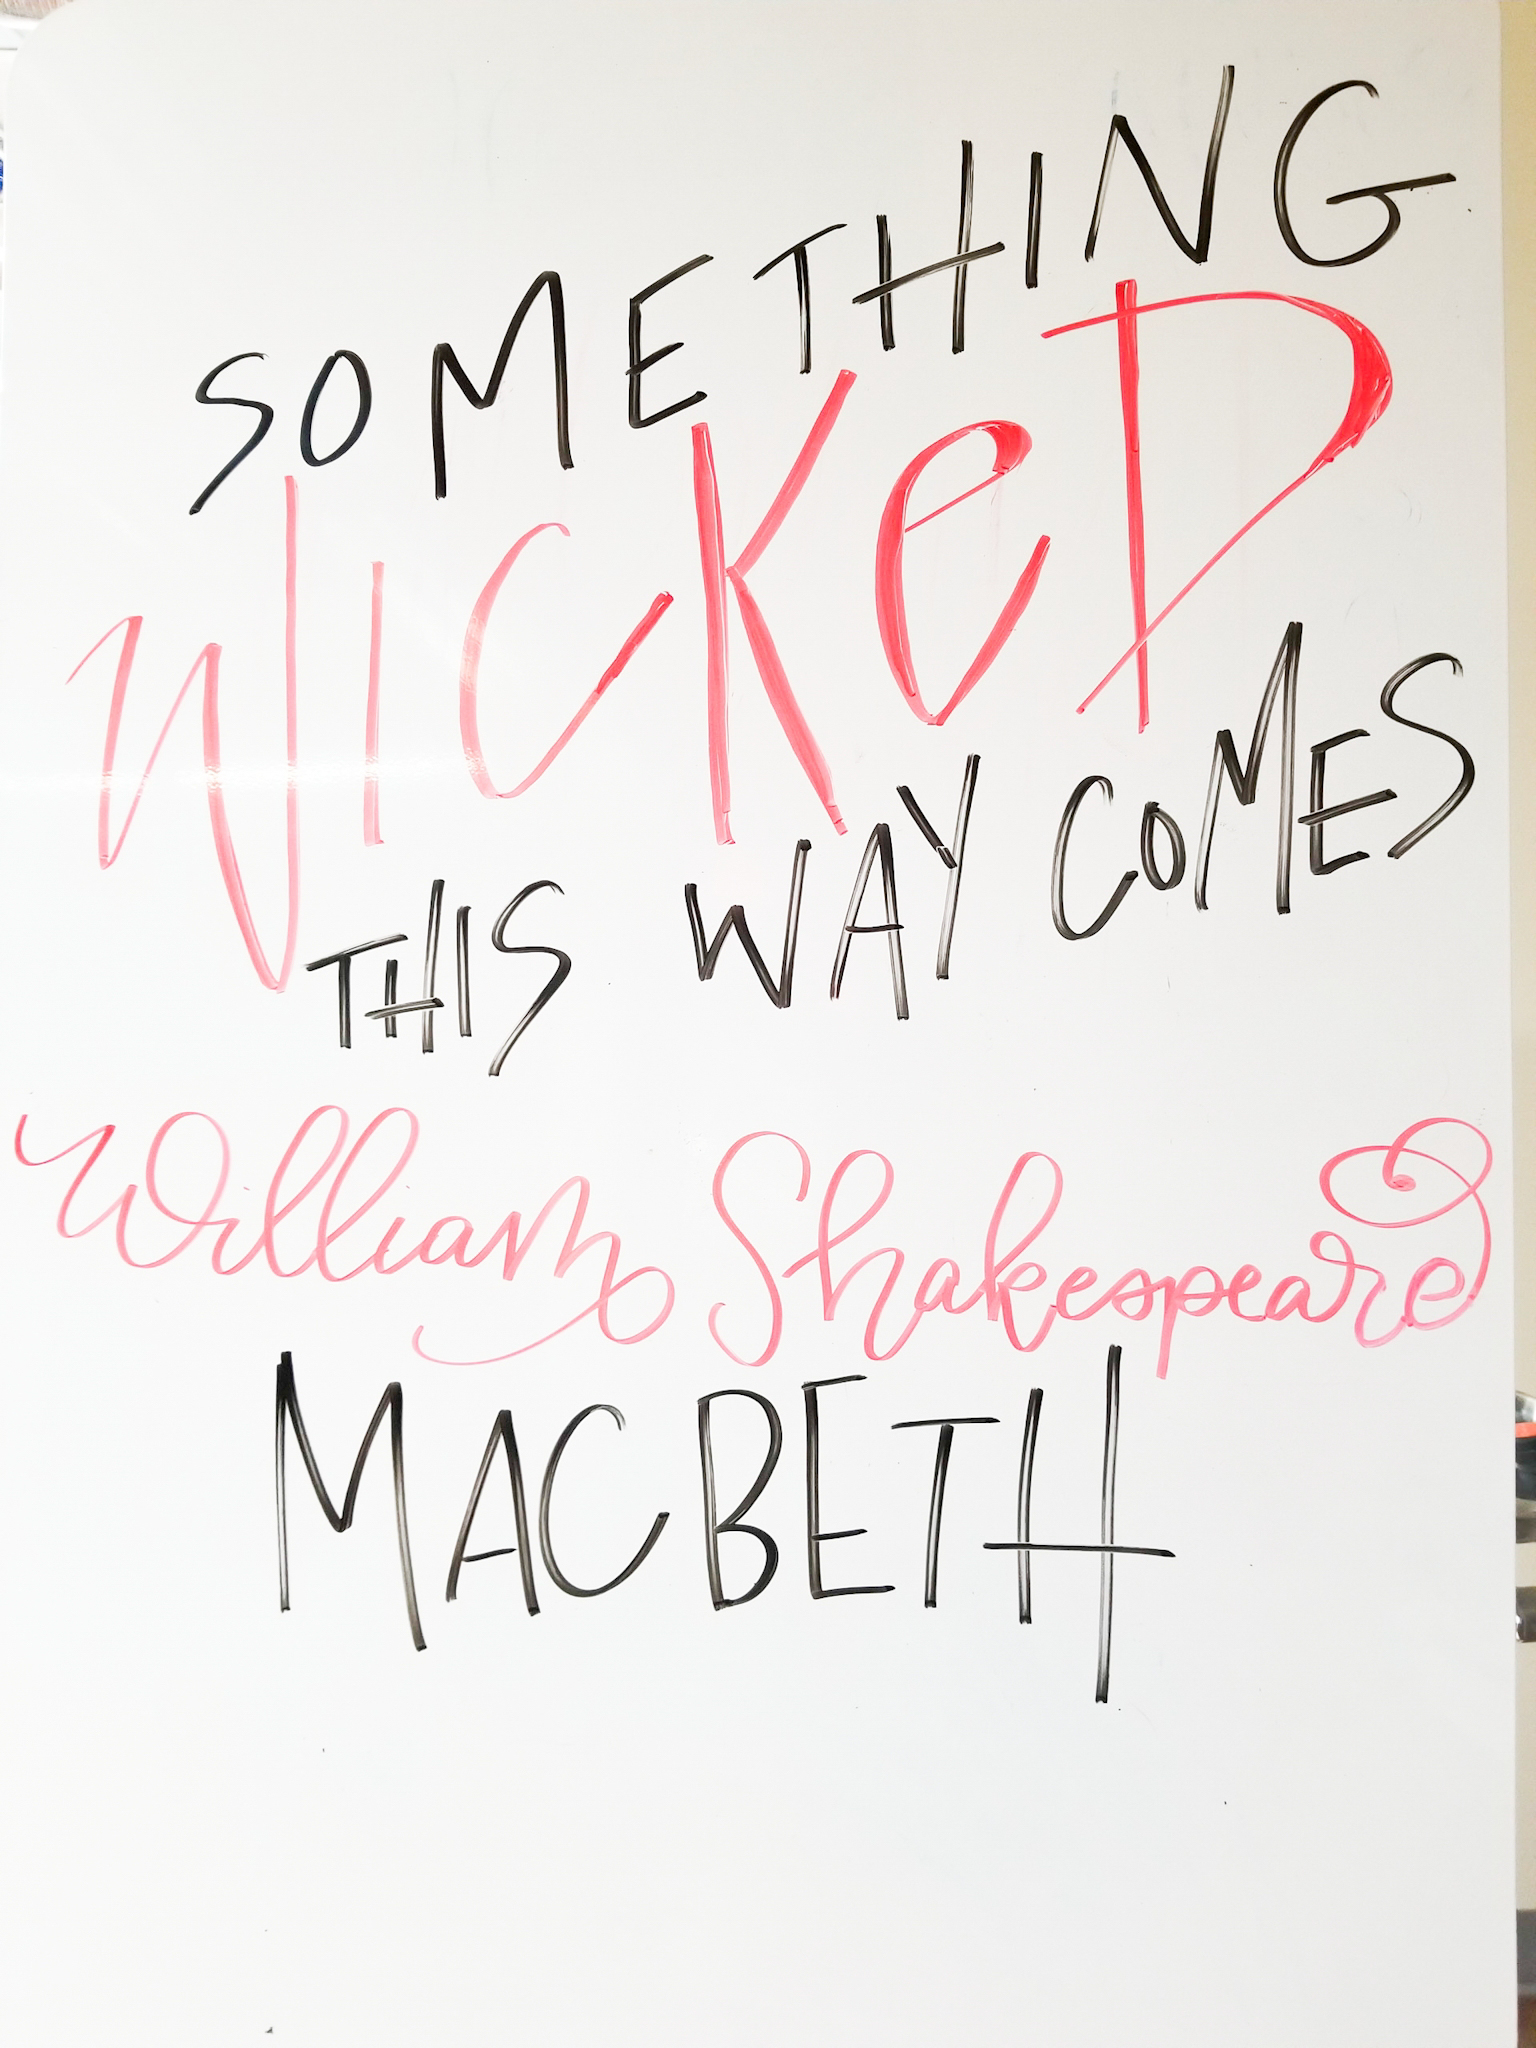 SOMETHING
WICKeD
THIS WAY COMES
William Shakespeare
MACBETH